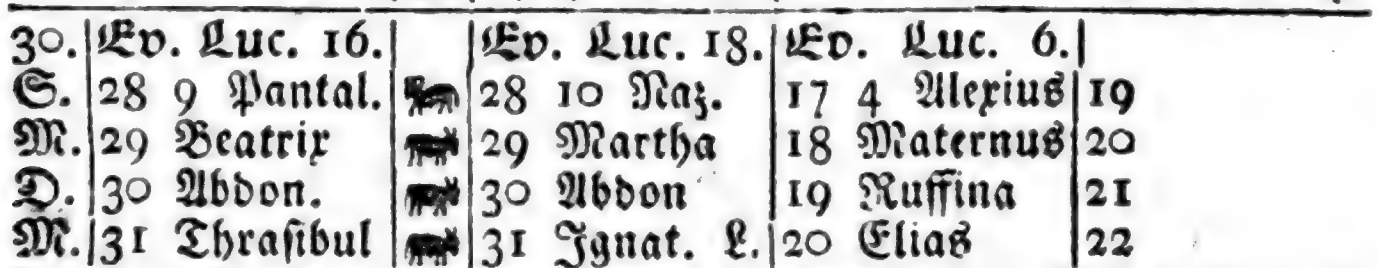 30. Ev. Luc. 16. Ev. Luc. 18. Ev. Luc. 6.
S. 28 9 Pantal. 28 10 Naz. 17 4 Alexius 19
M. 29 Beatrix 29 Martha 18 Maternus 20
D. 30 Abdon. 30 Abdon 19 Ruffina 21
M. 31 Thraſibul 31 Ignat. L. 20 Elias 22